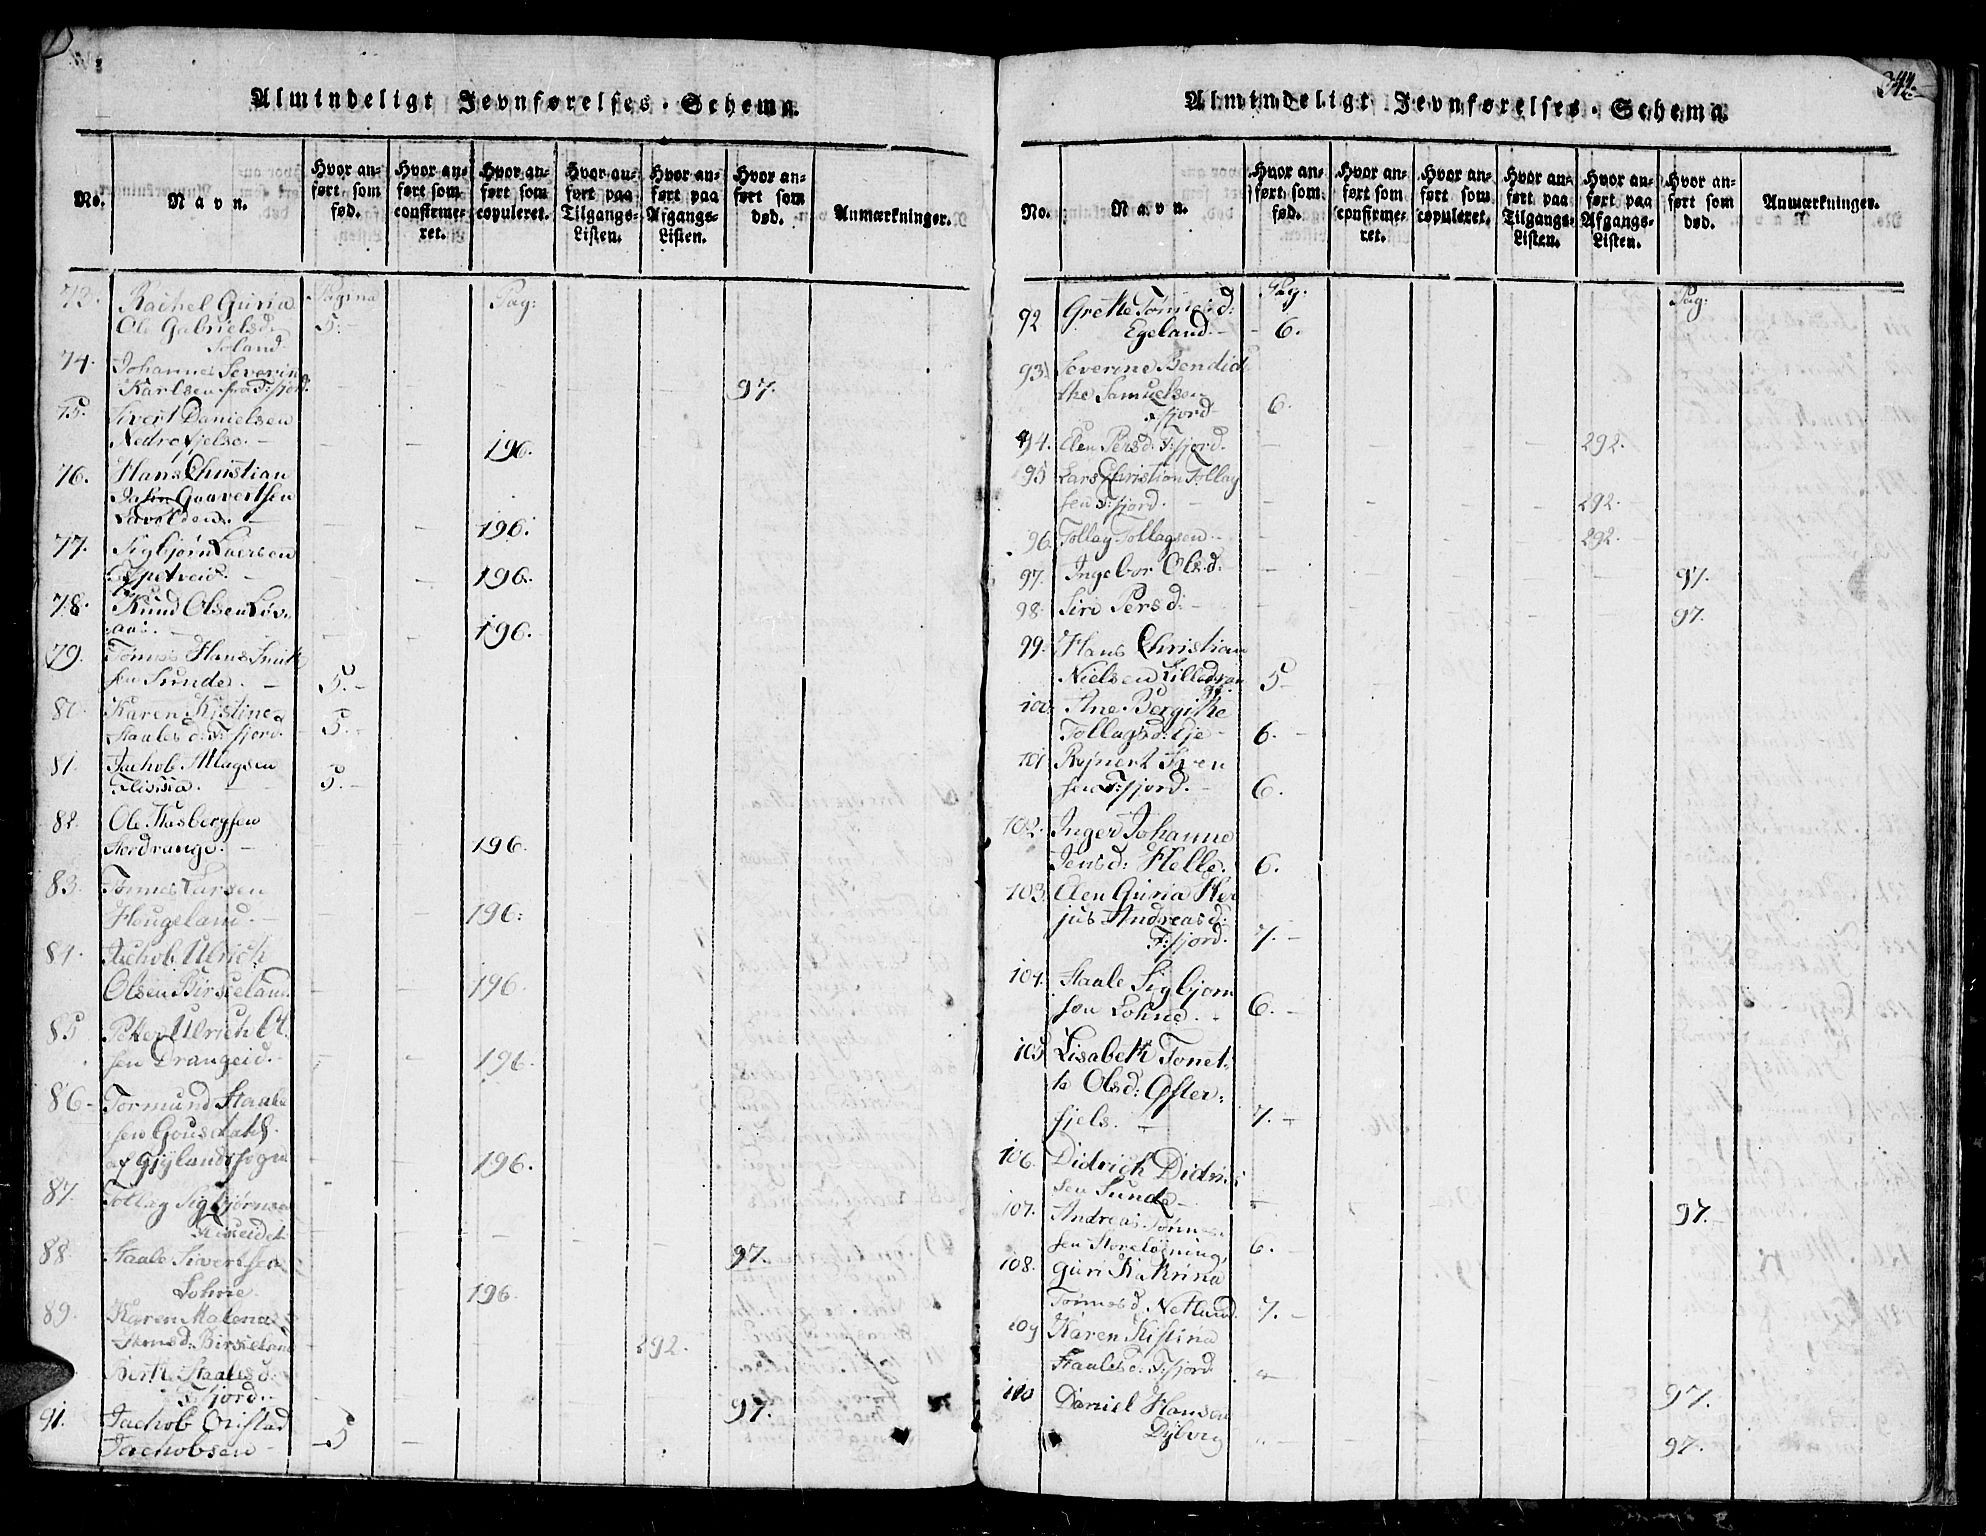 Almindeligt Jevnførelses-Schema.
No. Navn. Hvor anført som fød. Hvor anført som confirmeret. Hvor anført som copuleret. Hvor anført paa Tilgangs-Listen. Hvor anført paa Afgangs-Listen. Hvor anført som død. Anmærkninger.
73. Rachel Guria Pagina Pag:
Ole Gabrielsd: 5.-
Soland.
74. Johannes Severin
Karlsen fra F:fjord. 97.
75. Sivert Danielsen
Nedre 196.
76. Hans Christian
Gaavertsen
196.
77. Sigbjørn Laersen
Espetveid. 196.
78. Knud Olsen Løv
aas. 196.
79. Tønnes Hans
sen Sunde. 5.-
80. Karen Kistine
Staalesd: F:fjord. 5.-
81. Jachob Atlagsen
Flissia. 5.-
82. Ole Aasbergsen
Nordrange. 196.
83. Tønnes Larsen
Hougeland. 196.
84. Jachob Ulrich
Olsen Birkeland 196.
85 Peter Ulrich Ol
sen Drangeid. 196.
86- Tormund Staale
sen Gousdahl
af Gyland Sogn 196.
87. Tollag Sigbjørnsen
Fiskeidet 97.
88 Staale Sivertsen
Lohne. 196
89. Karen Malena
Birkeland 292.
Berthe Staalesd:
F:fjord. 97.
91. Jachob
Jachobsen 5
344.
Almindeligt Jevnførelses-Schema.
No. Navn. Hvor anført som fød. Hvor anført som confirmeret. Hvor anført som copuleret. Hvor anført paa Tilgangs-Listen. Hvor anført paa Afgangs-Listen. Hvor anført som død. Anmærkninger.
92 Grethe Tønnesd: Pag. Pag:
Egeland. 6.
93 Severine Bendid
the Samuelsen
F:fjord 6.
94. Elen Persd: F:fjord. 292.
95 Lars Christian Tollag
sen F:fjord. 292.
96. Tollag Tollagsen 292.
97. Ingebor Olsd: 97.
98. Siri Persd: 97.
99. Hans Christian
Nielsen Lilledran
ge 5
100. Ane Bergithe
Tollagsd: Eje 6.
101 Rejnert Sven
sen F:fjord. 6.
102. Inger Johanne
Jensd: Helle. 6.
103. Elen Guria Ter
jus Andreasd:
F:fjord. 7.-
104. Staale Sigbjørn
sen Lohne. 6.-
105. Lisabeth Tonet
te Olsd: Øfter:
fjels. 7.-
106. Didrich Didrich
sen Sunde 97.
107. Andreas Tønnes
sen Store 6.
108. Guri Kathrina
Tønnesd. Netland. 7.-
109 Karen Kistina
Staalesd: F:fjord. 97.
110 Daniel Hansen
Dybvig 97.